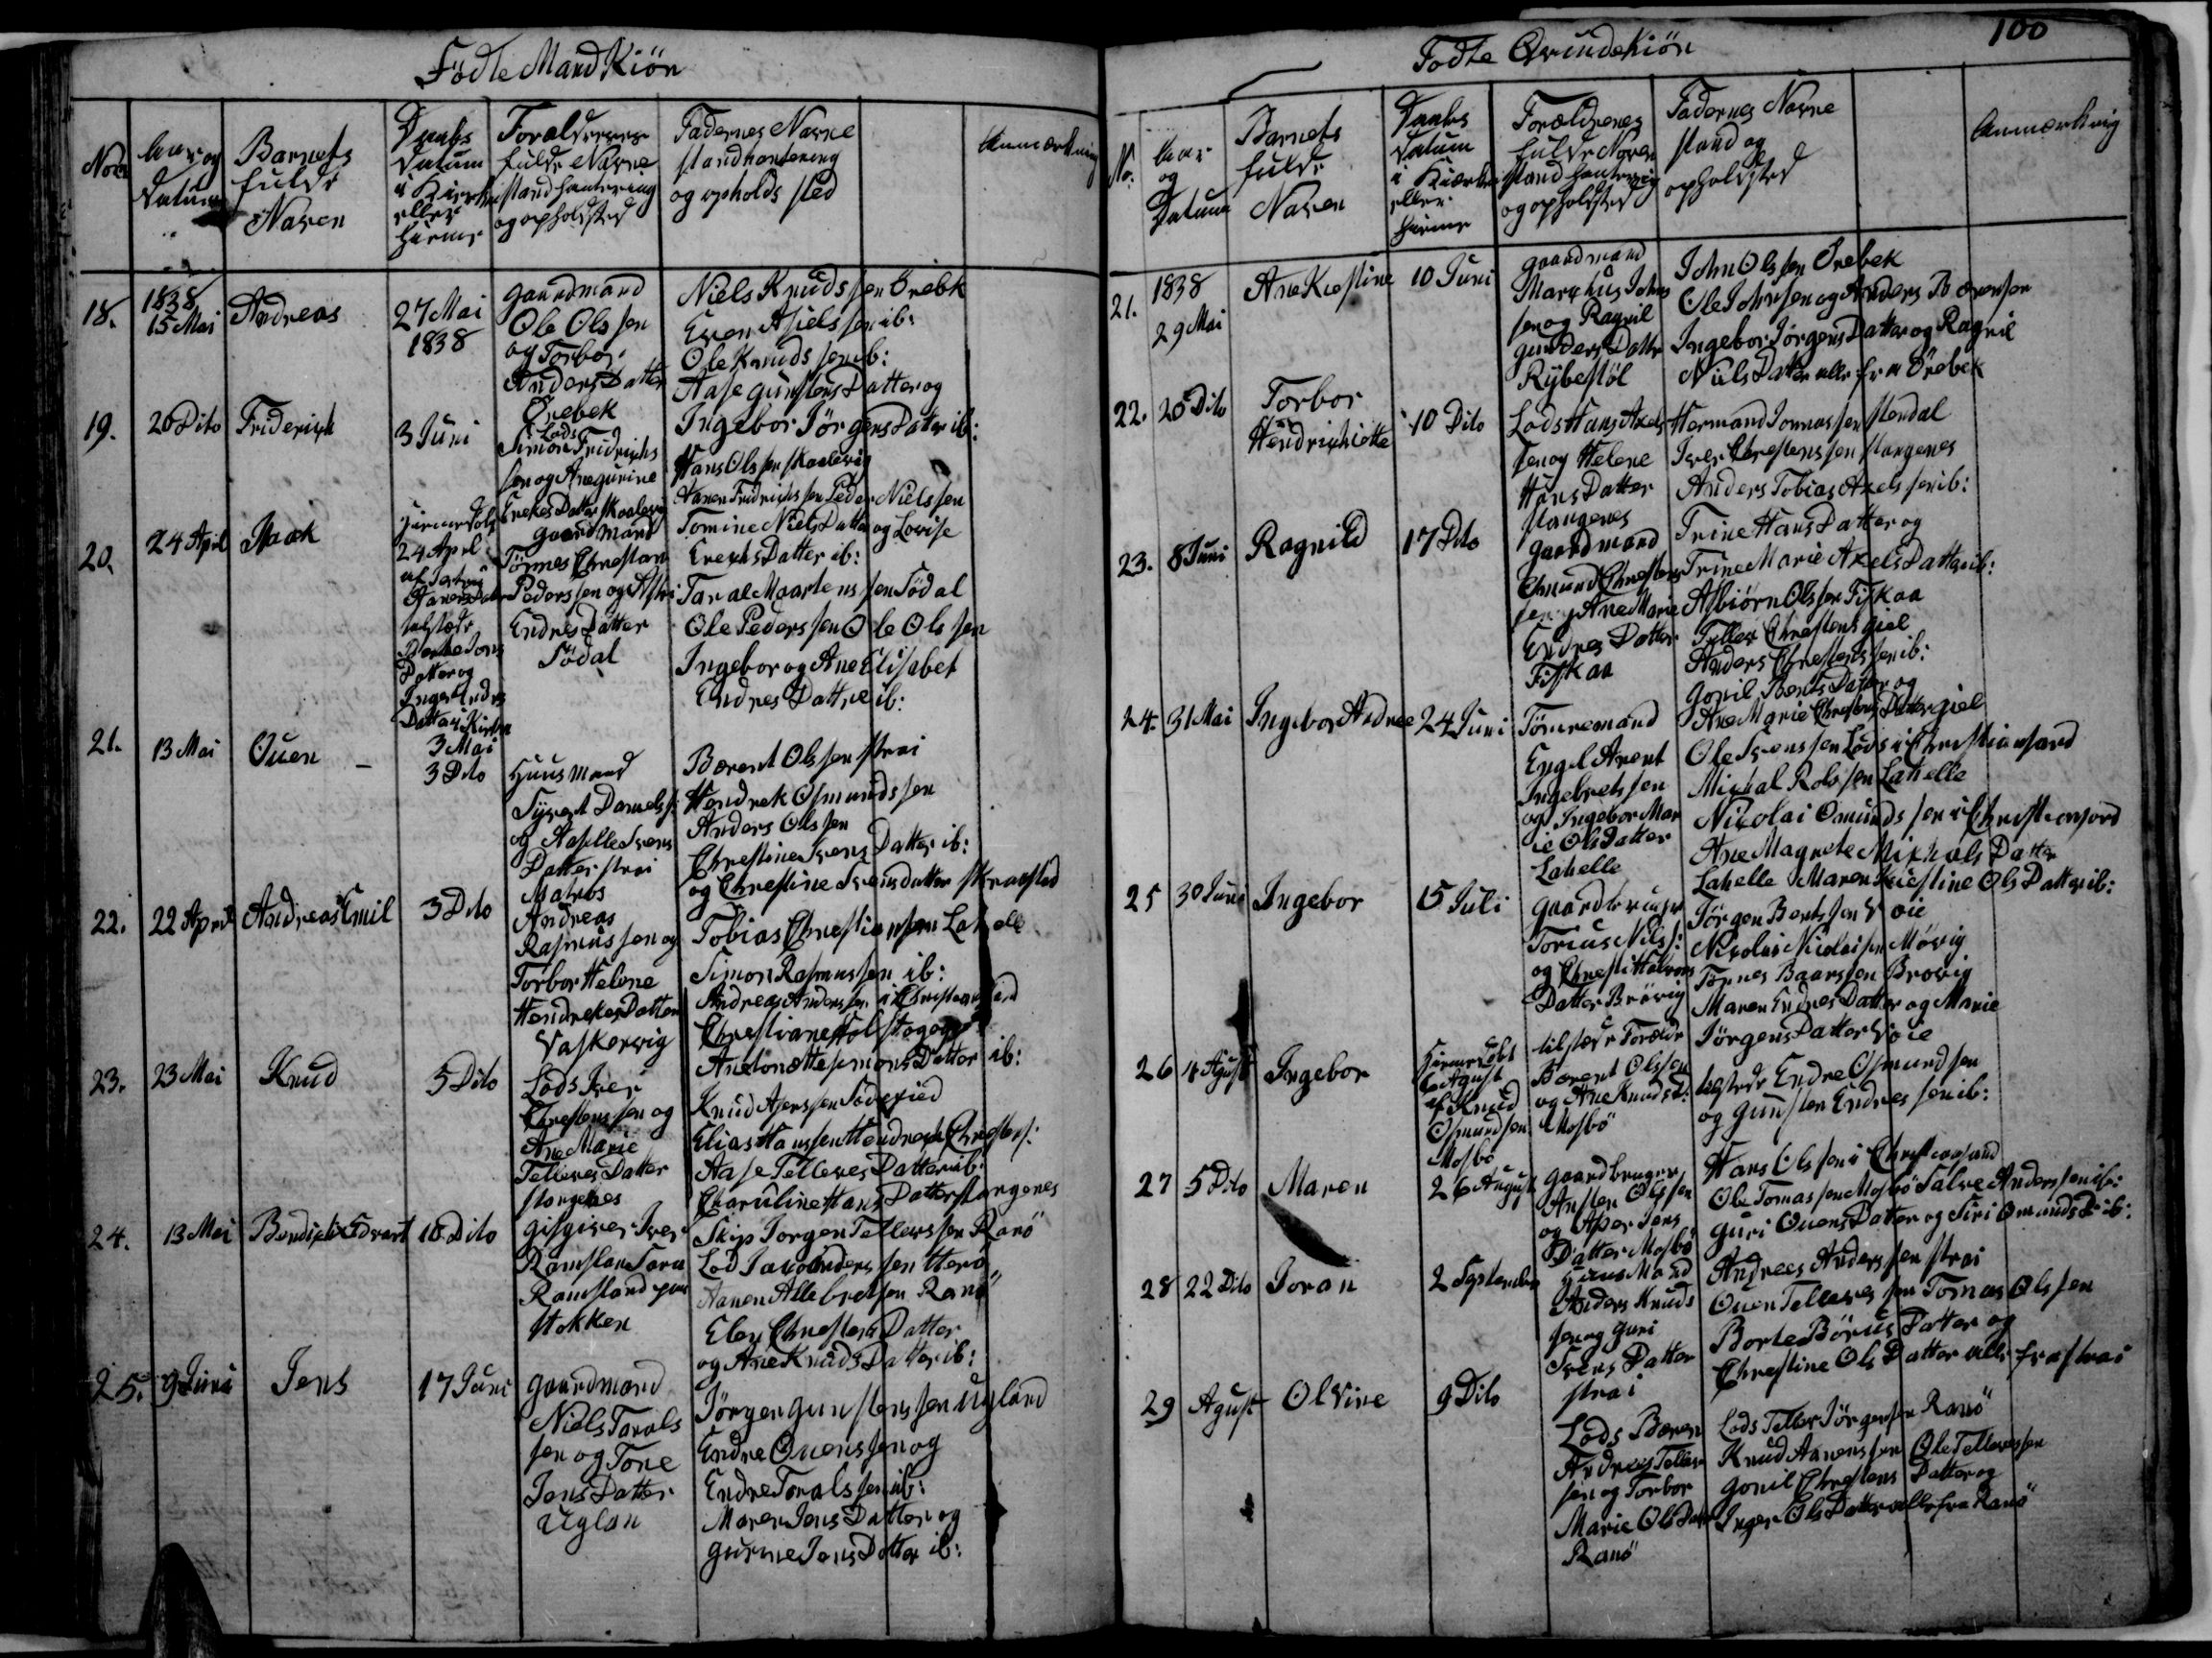 Födte Mand Kiön
No
Aar og Datum
Barnets fulde Navn
Daabs Datum i Kirken eller hiemme
Foraldrenes fulde Navne stand hantering og opholdsted
Fadernes Navne stand hantering og opholds sted
Anmærkning
18.
1838
15 Mai
Andreas
27 Mai
1838
gaardmand
Ole Olssen
og Torbor
Anders Datter
Örebek
Niels Knudssen Örebk
Even Assels sen ib:
Ole Knuds sen ib:
Aase gunstens Datter og
Ingebor Jörgens Datter ib:
19.
20 Dito
Friderich
3 Juni
Lods
Simon Fridrichs
sen og Anegurine
Erekes Datter Skaalevig
Hans Olssen Skaalevig
Aanen Fridrichssen Peder Nielssen
Tomine Niels Datter og Lovise
Erechs Datter ib:
20.
24 April
Isaak
hiemmedöbt
24 April
af Jertrui
Aanens Datter
tilstede
Berthe Jens
Datter og
Inger Endres
Datter i Kirken
3 Mai
gaardmand
Tönnes Chrestian
Pederssen og Assri
Endres Datter
Södal
Taral Maartens sen Södal
Ole Peders sen Ole Ols sen
Ingebor og Ane Elisabet
Endres Dattre ib:
21.
13 Mai
Ouen
3 Dito
Huusmand
Syvert Danielss:
og Aaselle Ivers
Datter strai
Bærent Olssen strai
Hendrek Osmundssen
Anders Olssen
Chrestine Svens Datter ib:
og Chrestine Svensdatter Skraasted
22.
22 April
Andreas Emil
3 Dito
Matros
Andreas
Rasmussen og
Torbor Helene
Hendrekes Datter
Vaskervig
Tobias Chrestiansen Lahelle
Simon Rasmussen ib:
Andreas Anderssen i Christiansand
Chrestiane Holst og og
Anetonette Simons Datter ib:
23.
23 Mai
Knud
5 Dito
Lods Iver
Chrestenssen og
Ane Marie
Telleves Datter
Stangenes
Knud Aserssen Söderied
Elias Hanssen Hendrech Chrestens:
Aase Telleves Datter ib:
Charuline Hans Datter Stangenes
24.
13 Mai
Bendichte Edvart
10 Dito
gisgiver Iver
Ramslan Sara
Ramsland paa
Stokken
Skip Jorgen Tellevssen Ranö
Lod Jaco Anderssen Herö
Aanen Allebretsen Ranö
Elen Chrestens Datter
og Ane Knuds Datter ib:
25.
9 Juni
Jens
17 Juni
gaardmand
Niels Tarals
sen og Tone
Jens Datter
Uglan
Jörgen gunstenssen Ugland
Endre Ouenssen og
Endre Toralssen ib:
Maren Jens Datter og
gurine Jens Datter ib:
100
Fodte Qvindekiön
No.
Aar og Datum
Barnets fulde Navn
Daabs Datum i Kiærken eller hiemme
Forældrenes fulde Navn stand hantering og opholdsted
Fadernes Navne stand og opholdsted
Anmærkning
21.
1838
29 Mai
Ane Kiestine
10 Juni
gaardmand
Marchus Johns
sen og Ragnil
gunders Datter
Rybestöl
John Olssen Örebek
Ole Johnsen og Anders Bærensen
Ingebor Jörgens Datter og Ragnil
Niels Datter alle fra Örebek
22.
20 Dito
Torbor
Hendrichiette
10 Dito
Lods Hans Axels
sen og Helene
Hans Datter
Stangenes
Hermand Jonnassen Stendal
Iver Chrestenssen Stangenes
Anders Tobias Axels sen ib:
Trine Hans Datter og
Trine Marie Axels Datter ib:
23.
8 Juni
Ragnild
17 Dito
gaardmand
Omund Chrestens
sen og Ane Marie
Endres Datter
Fiskaa
Asbiörn Olssen Fiskaa
Tellev Chrestens giel
Anders Chrestenssen ib:
Gonil Bents Datter og
Ane Marie Chrestens Datter giel
24.
31 Mai
Ingebor Andree
24 Juni
Tömremand
Engel Arent
Ingebretssen
og Ingebor Mar
ie Ols Datter
Lahelle
Ole Svenssen Lods i Christiansand
Michal Rolssen Lahelle
Nicolai Omunds sen i Christiansord
Ane Magrete Michals Datter
Lahelle Maren Kiestine Ols Datter ib:
25
30 Juni
Ingebor
15 Juli
gaardbruger
Torius Nilss:
og Chresti Halvors
Datter Brövig
Jörgen Bentssen Voie
Nicolai Nicolaisen Mövig
Tönnes Baarssen Brovig
Maren Endres Datter og Marie
Jörgens Datter Voie
26
4 Agust
Ingebor
Hiemmedöbt
6 Agust
af Knud
Osmundsen
Mosbö
tilstede Forældre
Bærent Olssen
og Ane Knuds D:
Mosbö
tilstede Endre Osmundsen
og gunsten Endres sen ib:
27
5 Dito
Maren
26 August
gaardbruger
Ansten Olssen
og Aser Jens
Datter Mosbö
Hans Olssen i Chrestiansand
Ole Tomassen Mosbö Salve Anderssen ib:
guri Ouens Datter og Siri Omunds D ib:
28
22 Dito
Joran
2 September
Huus Mand
Anders Knuds
sen og guri
Svens Datter
strai
Andreas Anderssen strai
Ouen Telleves sen Tomas Olssen
Borte Börius Datter og
Chrestine Ols Datter alle fra strai
29
Agust
Olvine
9 Dito
Lods Bæren
Andreas Tellev
sen og Torbor
Marie Ols Datter
Ranö
Lods Tellev Jörgensen Ranö
Knud Aanenssen Ole Tellevssen
Gonil Chrestens Datter og
Inger Ols Datter alle fra Ranö